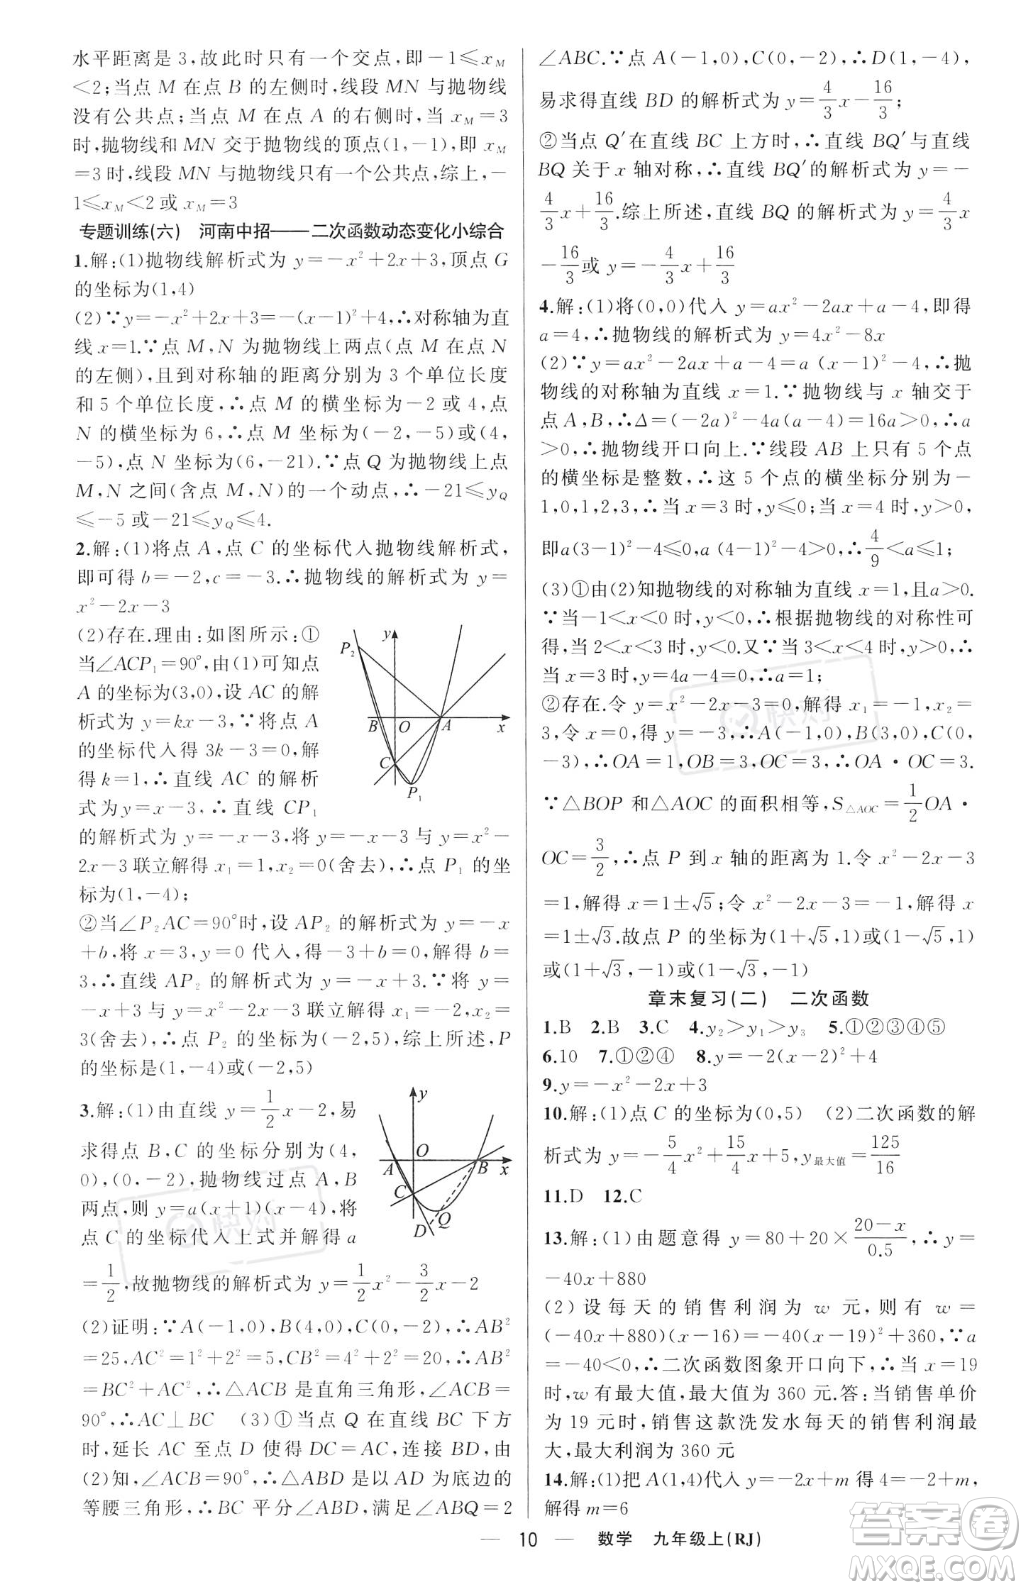 水平距离是3,故此时只有一个交点,即-1≤x_M
<2;当点M在点B的左侧时,线段MN与抛物线
没有公共点;当点M在点A的右侧时,当x_M=3
时,抛物线和MN交于抛物线的顶点(1,-1),即x_M
=3时,线段MN与抛物线只有一个公共点,综上,-
1≤x_M<2或x_M=3
专题训练(六) 河南中招——二次函数动态变化小综合
1.解:(1)抛物线解析式为y=-x²+2x+3,顶点G
的坐标为(1,4)
(2)∵y=-x²+2x+3=-(x-1)²+4,∴对称轴为直
线x=1.∵点M,N为抛物线上两点(点M在点N
的左侧),且到对称轴的距离分别为3个单位长度
和5个单位长度,∴点M的横坐标为-2或4,点
N的横坐标为6,∴点M的坐标为(-2,-5)或(4,
-5),点N的坐标为(6,-21).∵点Q为抛物线上点
M,N之间(含点M,N)的一个动点,∴-21≤y_Q
≤-5或-21≤y_Q≤4.
2.解:(1)将点A,点C的坐标代入抛物线解析式,
即可得b=-2,c=-3.∴抛物线的解析式为y=
x²-2x-3
(2)存在.理由:如图所示:①
当∠ACP₁=90°,由(1)可知点
A的坐标为(3,0),设AC的解
析式为y=kx-3,∵将点A
的坐标代入得3k-3=0,解
得k=1,∴直线AC的解析
式为y=x-3,∴直线CP₁
的解析式为y=-x-3,将y=-x-3与y=x²-
2x-3联立解得x₁=1,x₂=0(舍去),∴点P₁的坐
标为(1,-4);
②当∠P₂AC=90°时,设AP₂的解析式为y=-x
+b,将x=3,y=0代入,得-3+b=0,解得b=
3,∴直线AP₂的解析式为y=-x+3,将y=-x
+3与y=x²-2x-3联立解得x₁=-2,x₂=
3(舍去),∴点P₂的坐标为(-2,5),综上所述,P
的坐标是(1,-4)或(-2,5)
y
P₂
B
O
A
x
C
P₁
3.解:(1)由直线y=1/2x-2,易
求得点B,C的坐标分别为(4,
0),(0,-2),抛物线过点A,B
两点,则y=a(x+1)(x-4),将
点C的坐标代入上式并解得a
=1/2,故抛物线的解析式为y=1/2x²-3/2x-2
(2)证明:∵A(-1,0),B(4,0),C(0,-2),∴AB²
=25,AC²=1²+2²=5,CB²=4²+2²=20,∴AB²
=BC²+AC²,∴△ABC是直角三角形,∴∠ACB=
90°,∴AC⊥BC (3)①当点Q在直线BC下方
时,延长AC至点D使得DC=AC,连接BD,由
(2)知,∠ACB=90°,∴△ABD是以AD为底边的
等腰三角形,∴BC平分∠ABD,满足∠ABQ=2
y
A
O
B
x
C
Q
D
∠ABC.∵点A(-1,0),C(0,-2),∴D(1,-4),
易求得直线BD的解析式为y=4/3x-16/3;
②当点Q′在直线BC上方时,∵直线BQ′与直线
BQ关于x轴对称,∴直线BQ′的解析式为y=-
4/3x+16/3.综上所述,直线BQ的解析式为y=4/3x
-16/3或y=-4/3x+16/3
4.解:(1)将(0,0)代入y=ax²-2ax+a-4,即得
a=4,∴抛物线的解析式为y=4x²-8x
(2)∵y=ax²-2ax+a-4=a(x-1)²-4,∴抛
物线的对称轴为直线x=1.∵抛物线与x轴交于
点A,B,∴Δ=(-2a)²-4a(a-4)=16a>0,∴a
>0,∴抛物线开口向上.∵线段AB上只有5个点
的横坐标是整数,∴这5个点的横坐标分别为-
1,0,1,2,3,∴当x=3时,y≤0;当x=4时,y>0,
即a(3-1)²-4≤0,a(4-1)²-4>0,∴4/9<a≤1;
(3)①由(2)知抛物线的对称轴为直线x=1,且a>0.
∵当-1<x<0时,y<0,∴根据抛物线的对称性可
得,当2<x<3时,y<0.∵当3<x<4时,y>0,∴
当x=3时,y=0,∴4a-4=0,∴a=1;
②存在.令x²-2x-3=0,解得x₁=-1,x₂=
3.令x=0,则y=-3,∴A(-1,0),B(3,0),C(0,
-3),∴OA=1,OB=3,OC=3,∴OA·OC=3.
∵△BOP和△AOC的面积相等,S△AOC=1/2OA·
OC=3/2,∴点P到x轴的距离为1.令x²-2x-3
=1,解得x=1±√5;令x²-2x-3=-1,解得x
=1±√3.故点P的坐标为(1+√5,1)或(1-√5,1)
或(1+√3,-1)或(1-√3,-1)
章末复习(二) 二次函数
1.B 2.B 3.C 4.y₂>y₁>y₃ 5.①②③④⑤
6.10 7.①②④ 8.y=-2(x-2)²+4
9.y=-x²-2x+3
10.解:(1)点C的坐标为(0,5) (2)二次函数的解
析式为y=-5/4x²+15/4x+5,y最大值=125/16
11.D 12.C
13.解:(1)由题意得y=80+20×(20-x)/0.5,∴y=
-40x+880
(2)设每天的销售利润为w元,则有w=
(-40x+880)(x-16)=-40(x-19)²+360,∵a
=-40<0,∴二次函数图象开口向下,∴当x=19
时,w有最大值,最大值为360元.答:当销售单价
为19元时,销售这款洗发水每天的销售利润最
大,最大利润为360元
14.解:(1)把A(1,4)代入y=-x²-2x+1+m,
解得m=6
10 数学 九年级上(RJ)
快对
快对
答案圈
MXQE.COM